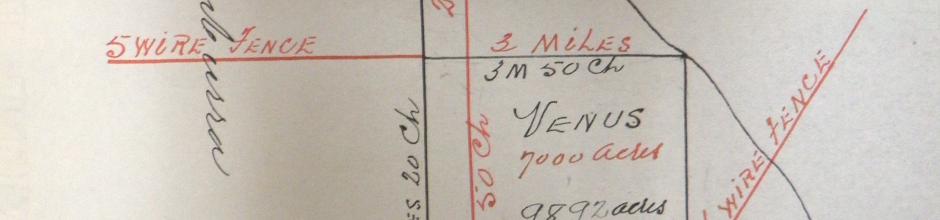 5 WIRE FENCE
3 MILES
3M 50 Ch
VENUS
7000 acres
9892 acres
20 Ch
50 Ch
WIRE FENCE